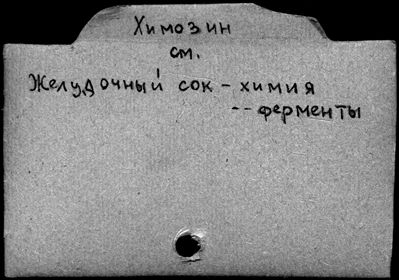 Химозин
см.
Желудочный сок - химия
-- ферменты